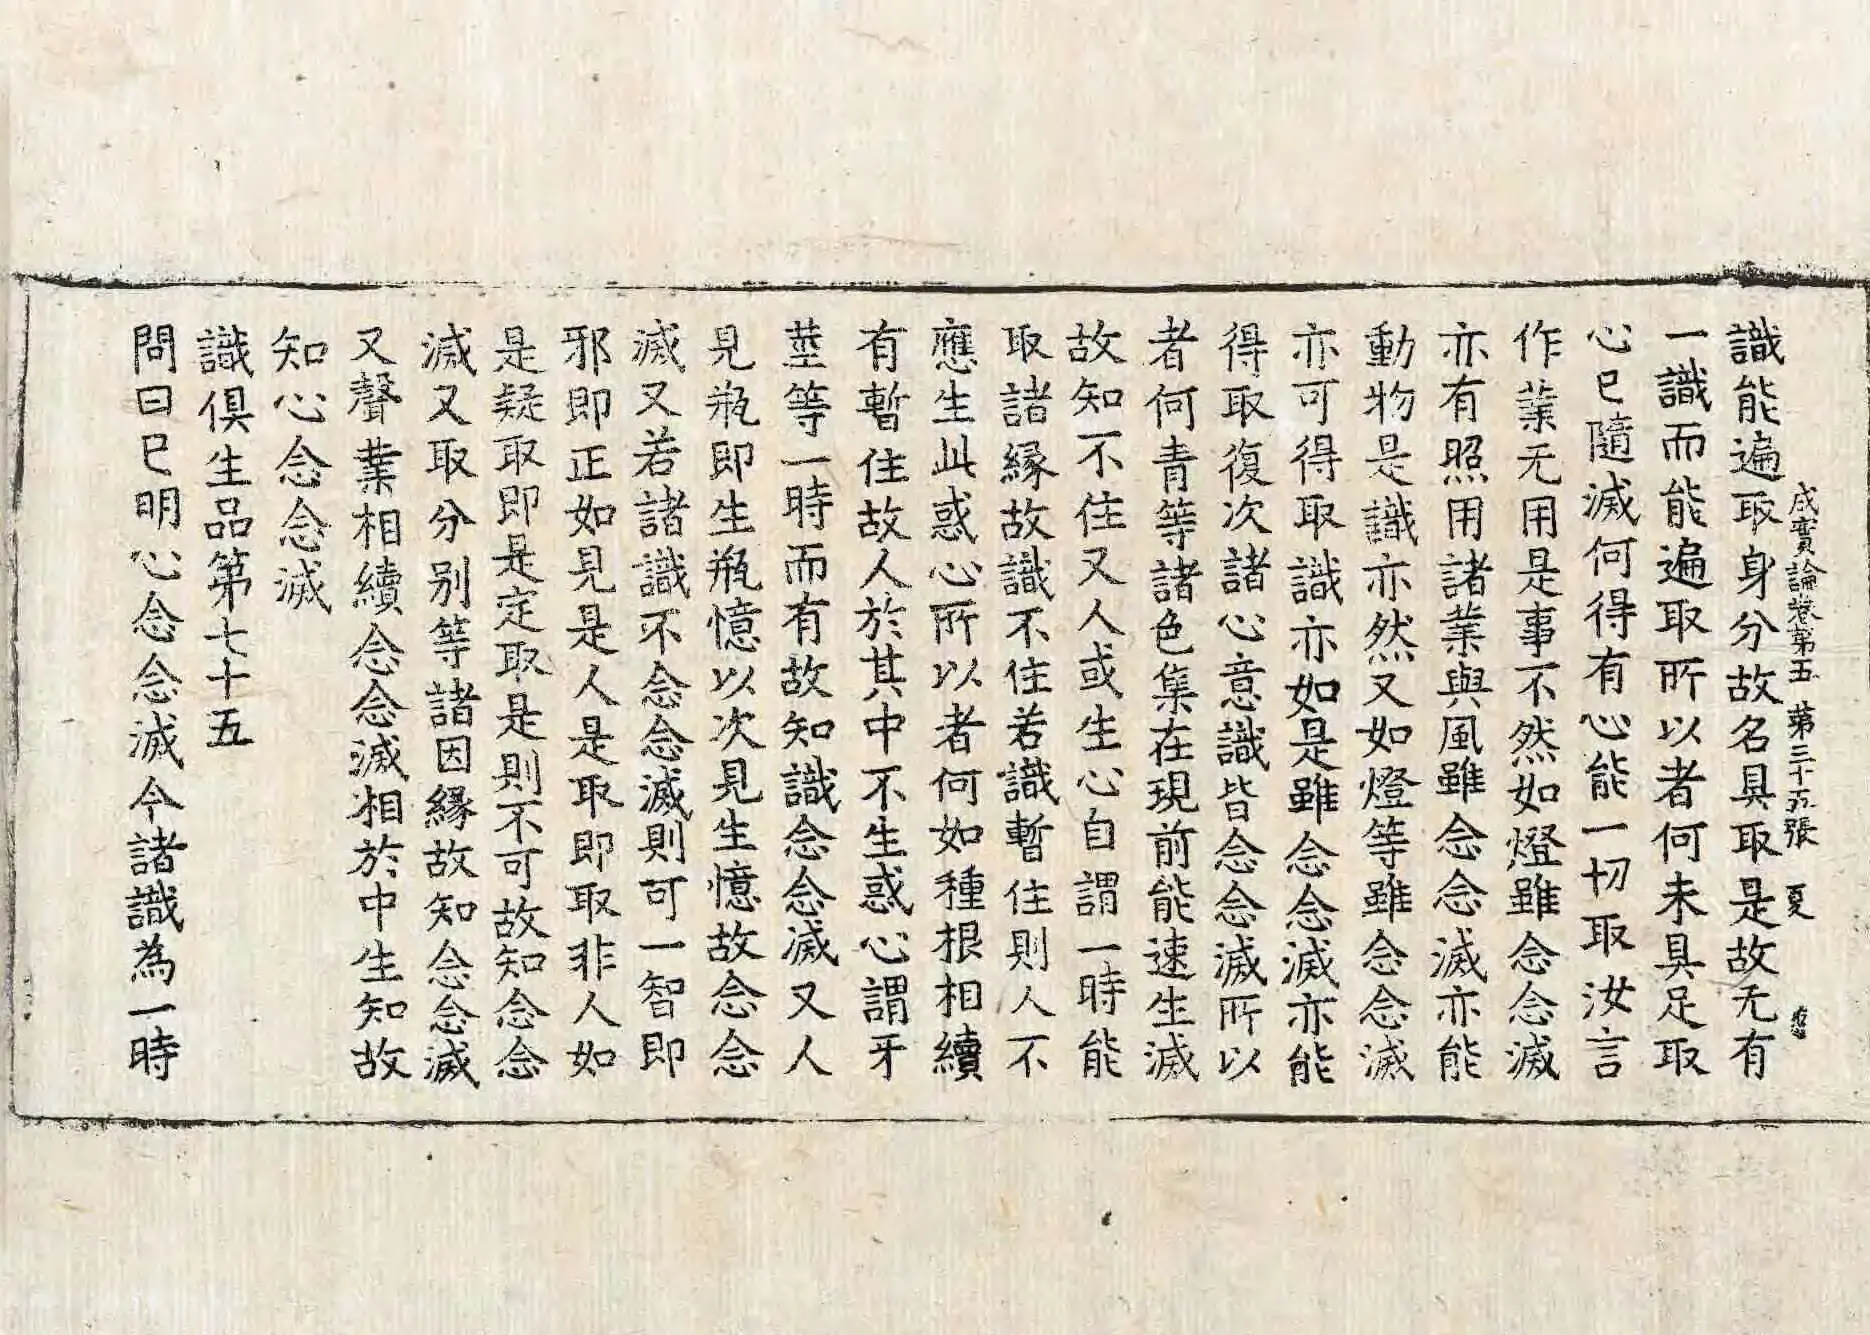 成實論卷第五 第三十五張 㝱
識能遍取身分故名具取是故无有
一識而能遍取所以者何未具足取
心已隨滅何得有心能一切取汝言
作業无用是事不然如燈雖念念滅
亦有照用諸業與風雖念念滅亦能
動物是識亦然又如燈等雖念念滅
亦可得取識亦如是雖念念滅亦能
得取復次諸心意識皆念念滅所以
者何青等諸色集在現前能速生滅
故知不住又人或生心自謂一時能
取諸緣故識不住若識暫住則人不
應生此惑心所以者何如種根相續
有暫住故人於其中不生惑心謂牙
莖等一時而有故知識念念滅又人
見瓶即生瓶憶以次見生憶故念念
滅又若諸識不念念滅則可一智即
邪即正如見是人是取即取非人如
是疑取即是定取是則不可故知念念
滅又取分別等諸因緣故知念念滅
又聲業相續念念滅相於中生知故
知心念念滅
識俱生品第七十五
問曰已明心念念滅今諸識為一時